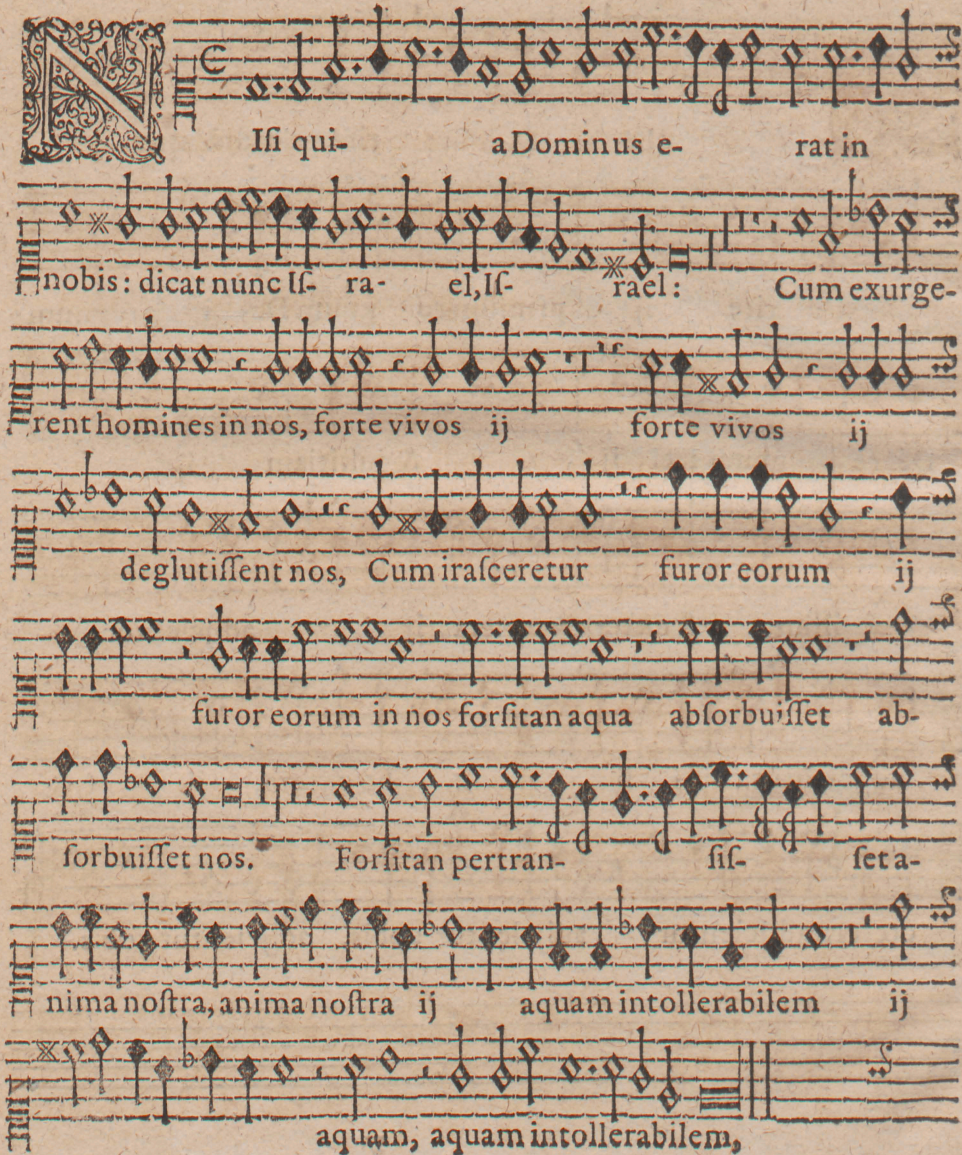 NIſi qui- a Dominus e- rat in
nobis: dicat nunc Iſ- ra- el, Iſ- rael: Cum exurge-
rent homines in nos, forte vivos ij forte vivos ij
deglutiſſent nos, Cum iraſceretur furor eorum ij
furor eorum in nos forſitan aqua abſorbuiſſet ab-
ſorbuiſſet nos. Forſitan pertran- ſiſ- ſet a-
nima noſtra, anima noſtra ij aquam intollerabilem ij
aquam, aquam intollerabilem,